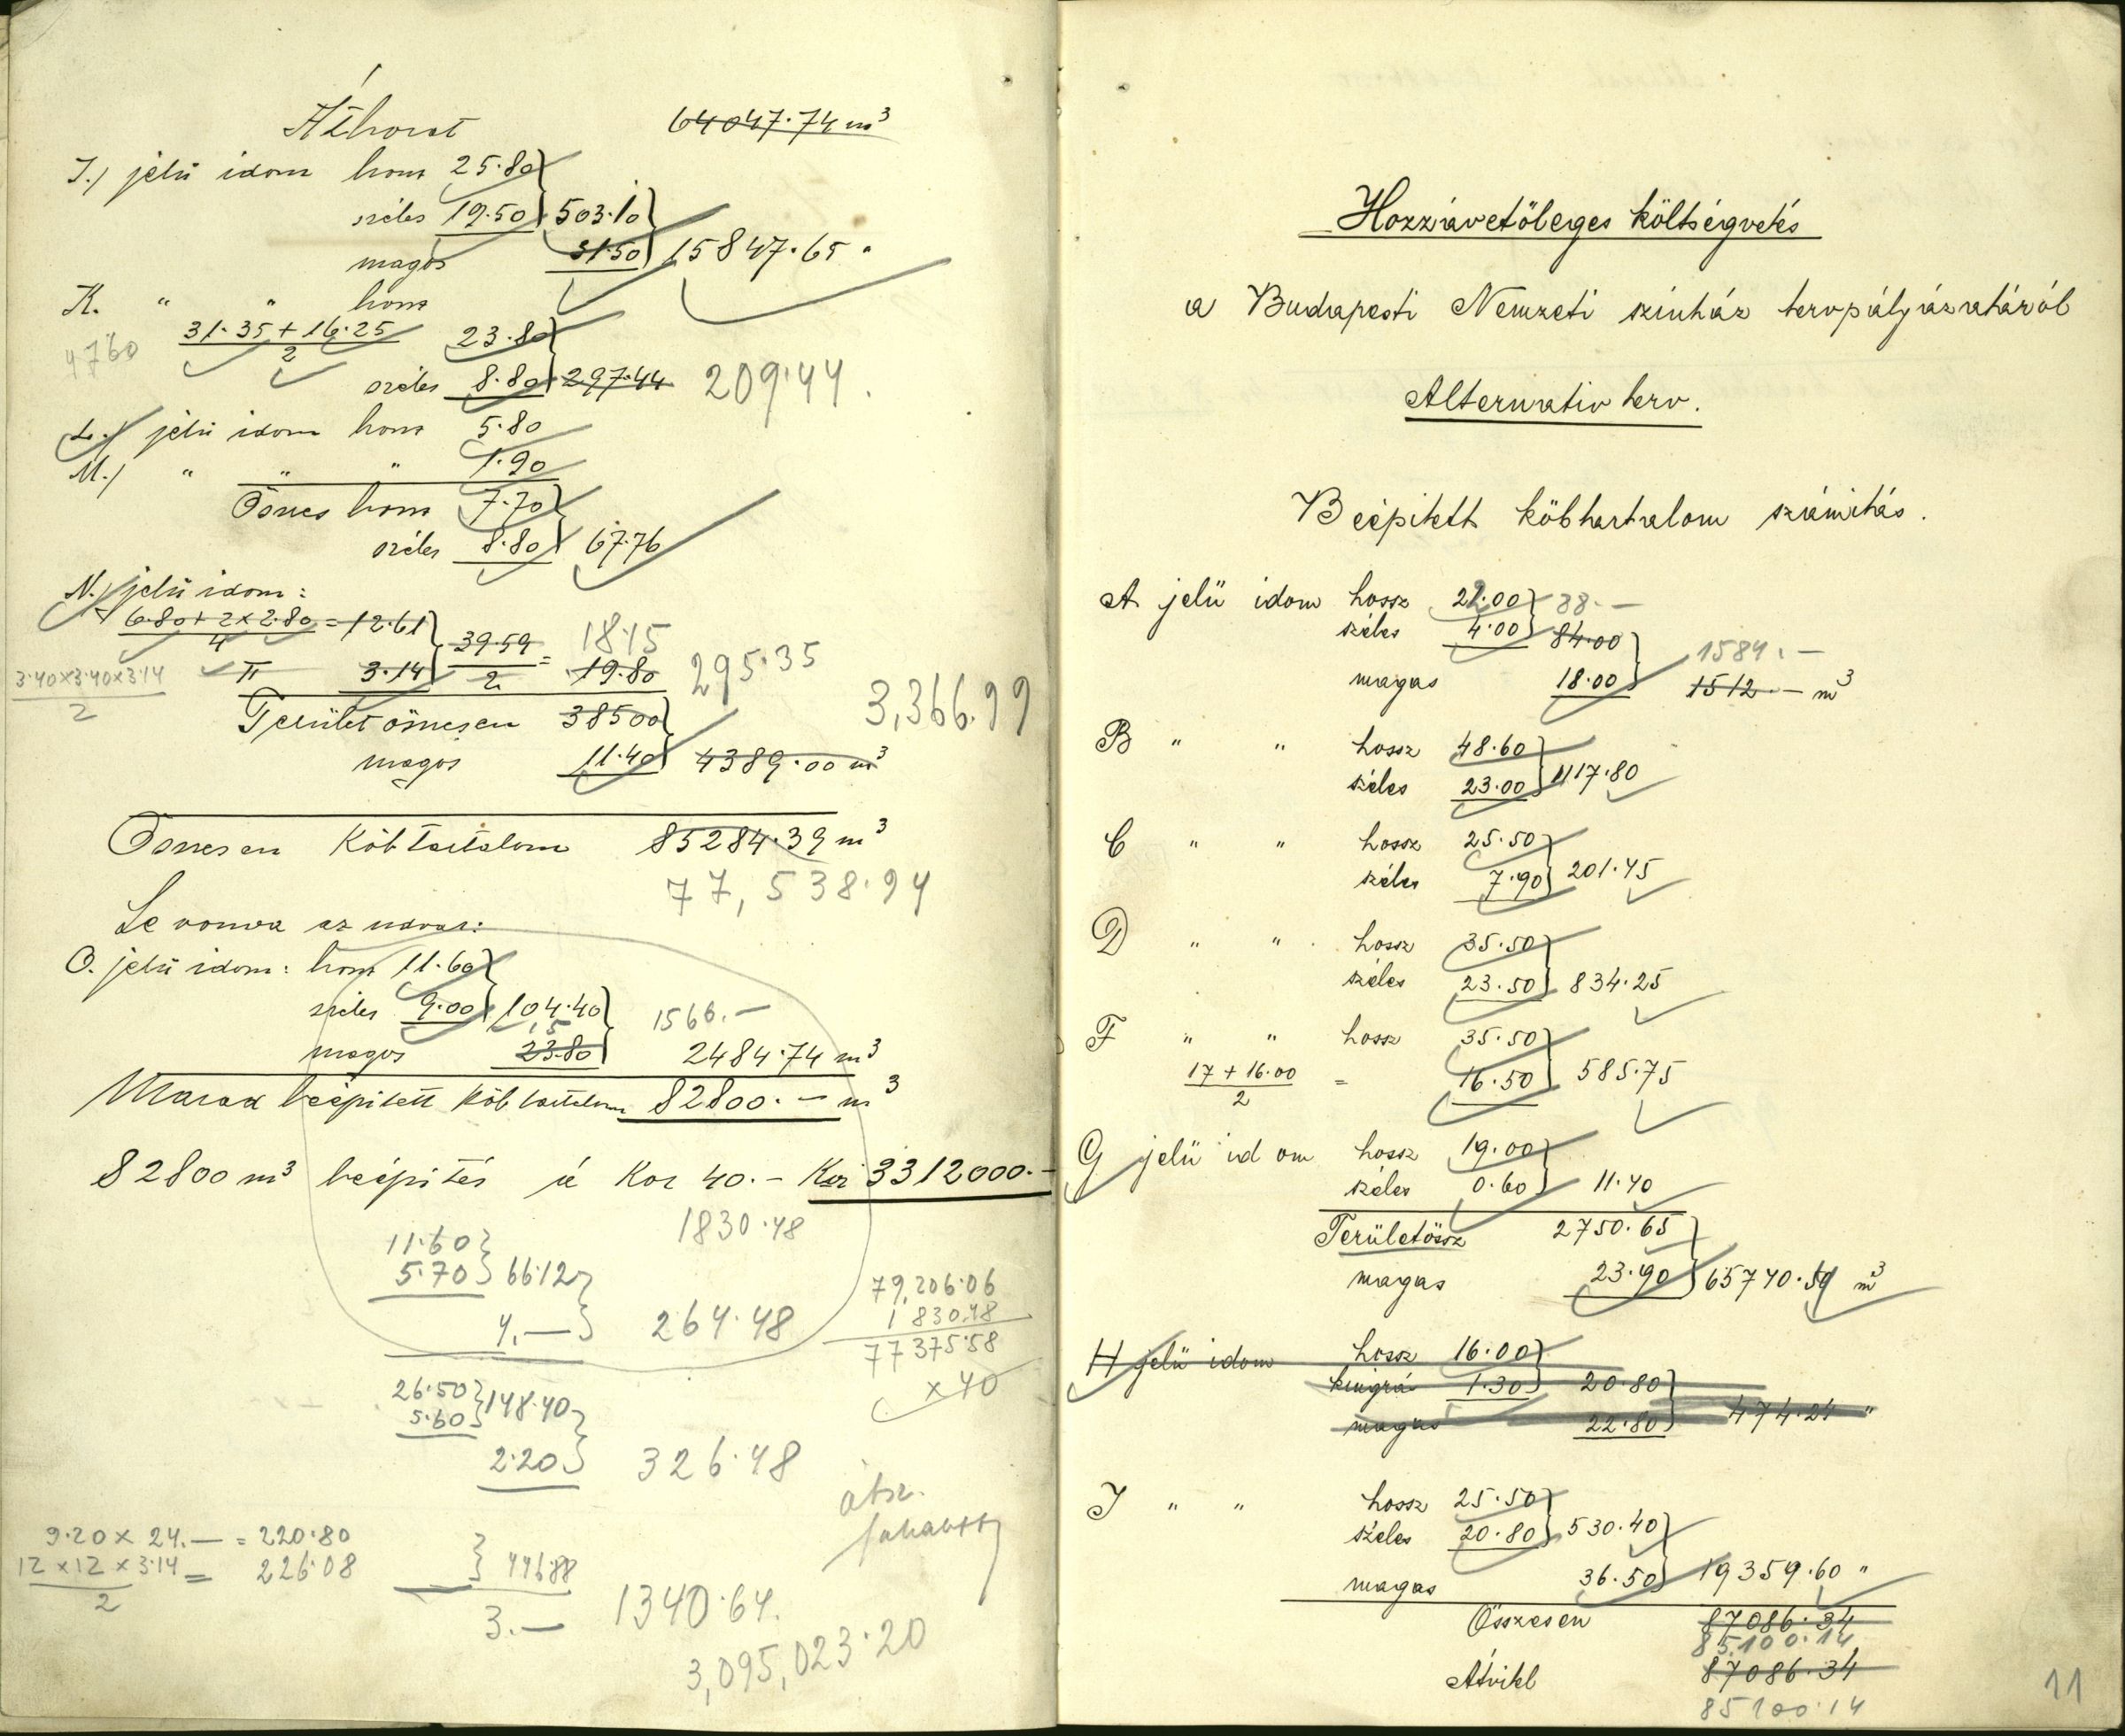 Áthozat 64047.74 m³
I.) jelü idom hossz 25.80
széles 19.50 503.10
magas 31.50 15847.65 "
K. " " hossz
31.35 + 16.25 23.80
4760 2
széles 8.80 297.44 209.44.
L.) jelü idom hossz 5.80
M.) " " " 1.90
Összes hossz 7.70
széles 8.80 67.76
N.) jelü idom:
6.80 + 2 x 2.80 = 12.61
4 39.59 = 18.15
π 3.14 2 19.80 295.35
3.40x3.40x3.14
2
Terület összesen 38500 3,366.99
magas 11.40 4389.00 m³
Összesen Köbtartalom 85284.39 m³
77,538.94
Le vonva az udvar:
O. jelü idom: hossz 11.60
széles 9.00 104.40 1566.—
15
magas 23.80 2484.74 m³
Marad beépitett köbtartalom 82800.— m³
82800 m³ beépités á Kor 40.— Kor 3312000.—
1830.48
11.60
5.70 66.12
4.— 264.48
79,206.06
1830.48
77375.58
x 40
26.50 148.40
5.60
2.20 326.48
átsz.
9.20 x 24.— = 220.80
12 x 12 x 3.14 = 226.08 446.88
2
3.— 1340.64.
3,095,023.20
Hozzávetöleges költségvetés
a Budapesti Nemzeti szinház tervpályázatáról
Alternativ terv.
Beépitett köbtartalom számitás.
A jelü idom hossz 22.00 88.—
széles 4.00 84.00
1584.—
magas 18.00 1512.— m³
B " " hossz 48.60
széles 23.00 1117.80
C " " hossz 25.50
széles 7.90 201.45
D " " hossz 35.50
széles 23.50 834.25
F " " hossz 35.50
17 + 16.00 = 16.50 585.75
2
G jelü idom hossz 19.00
széles 0.60 11.40
Területössz 2750.65
magas 23.90 65740.54 m³
H jelü idom hossz 16.00
kiugrá 1.30 20.80
magas 22.80 474.24 "
I " " hossz 25.50
széles 20.80 530.40
magas 36.50 19359.60 "
Összesen 87086.34
85.100.14
Átvitel 87086.34
85100.14
11